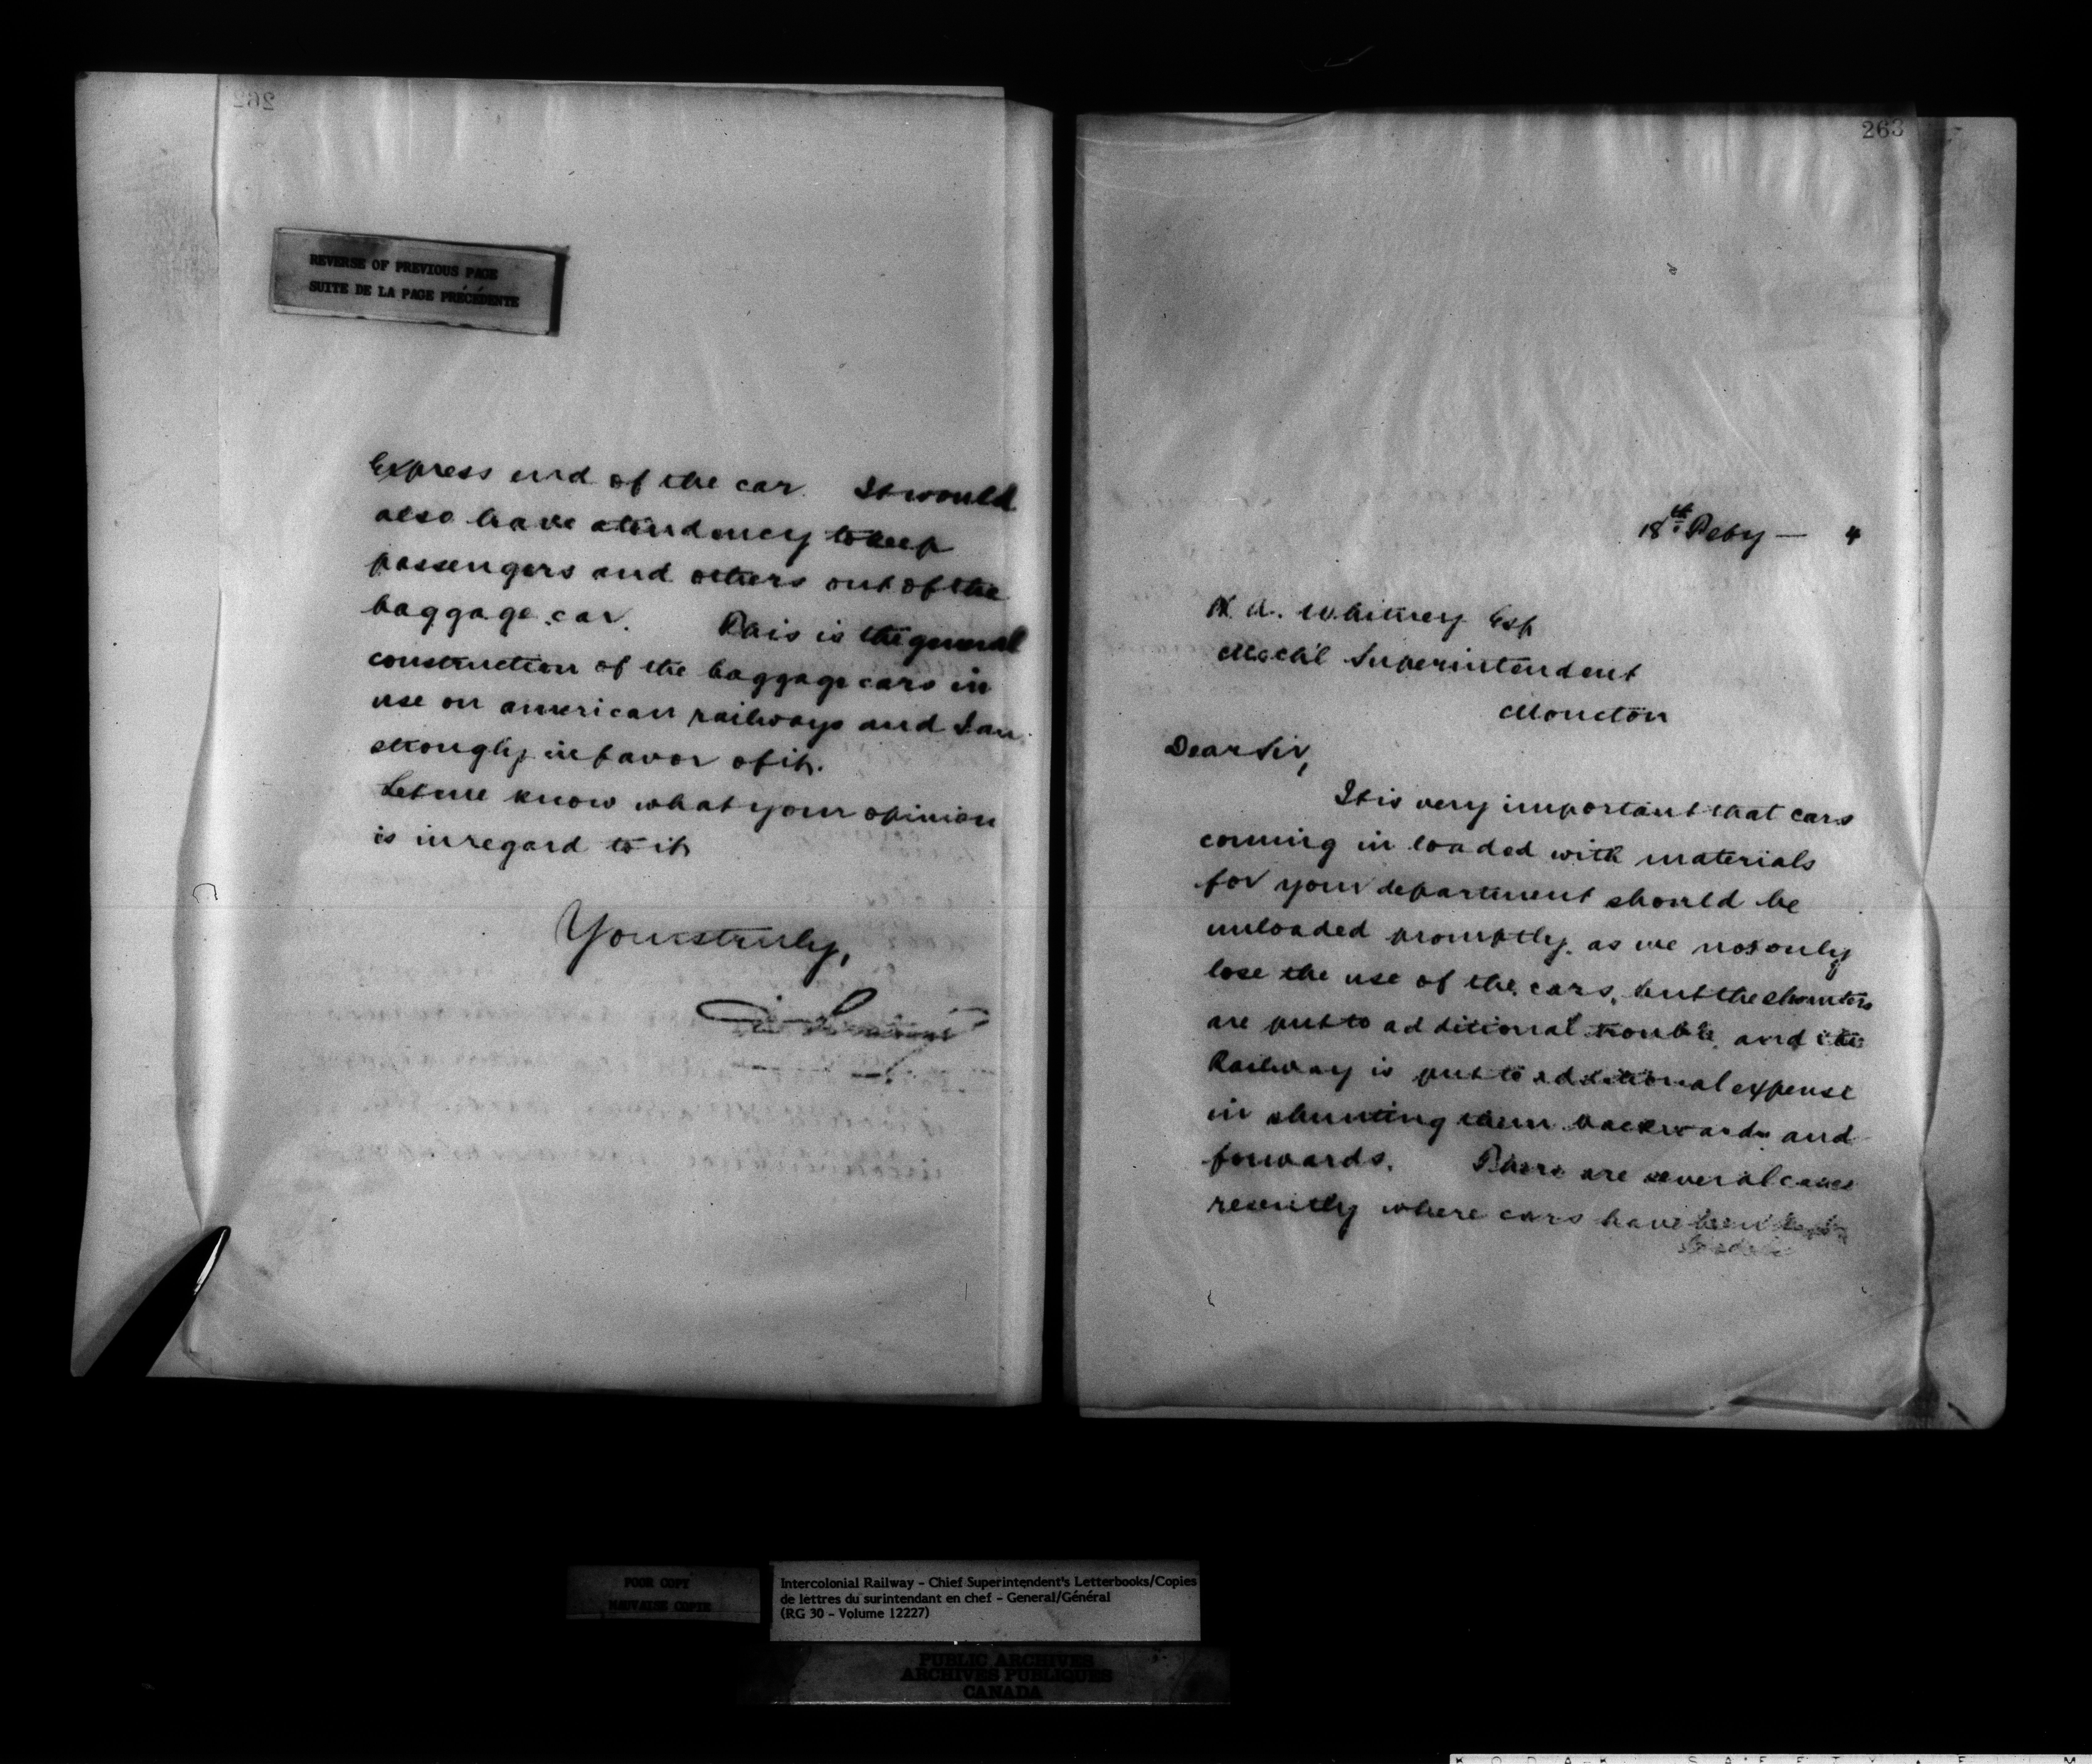 262
REVERSE OF PREVIOUS PAGE
SUITE DE LA PAGE PRÉCÉDENTE
Express end of the car. It would
also have a tendency to keep
passengers and others out of the
baggage car. This is the general
construction of the baggage cars in
use on american railways and I am
strongly in favor of it.
Let me know what your opinion
is in regard to it
Yours truly,
263
18th Feby — 4
H. A. Whitney Esq
Mech'l Superintendent
Moncton
Dear Sir,
It is very important that cars
coming in loaded with materials
for your department should be
unloaded promptly, as we not only
lose the use of the cars, but the shunters
are put to additional trouble, and the
Railway is put to additional expense
in shunting them backwards and
forwards. There are several cases
recently where cars have been kept
POOR COPY
MAUVAISE COPIE
Intercolonial Railway - Chief Superintendent's Letterbooks/Copies
de lettres du surintendant en chef - General/Général
(RG 30 - Volume 12227)
PUBLIC ARCHIVES
ARCHIVES PUBLIQUES
CANADA